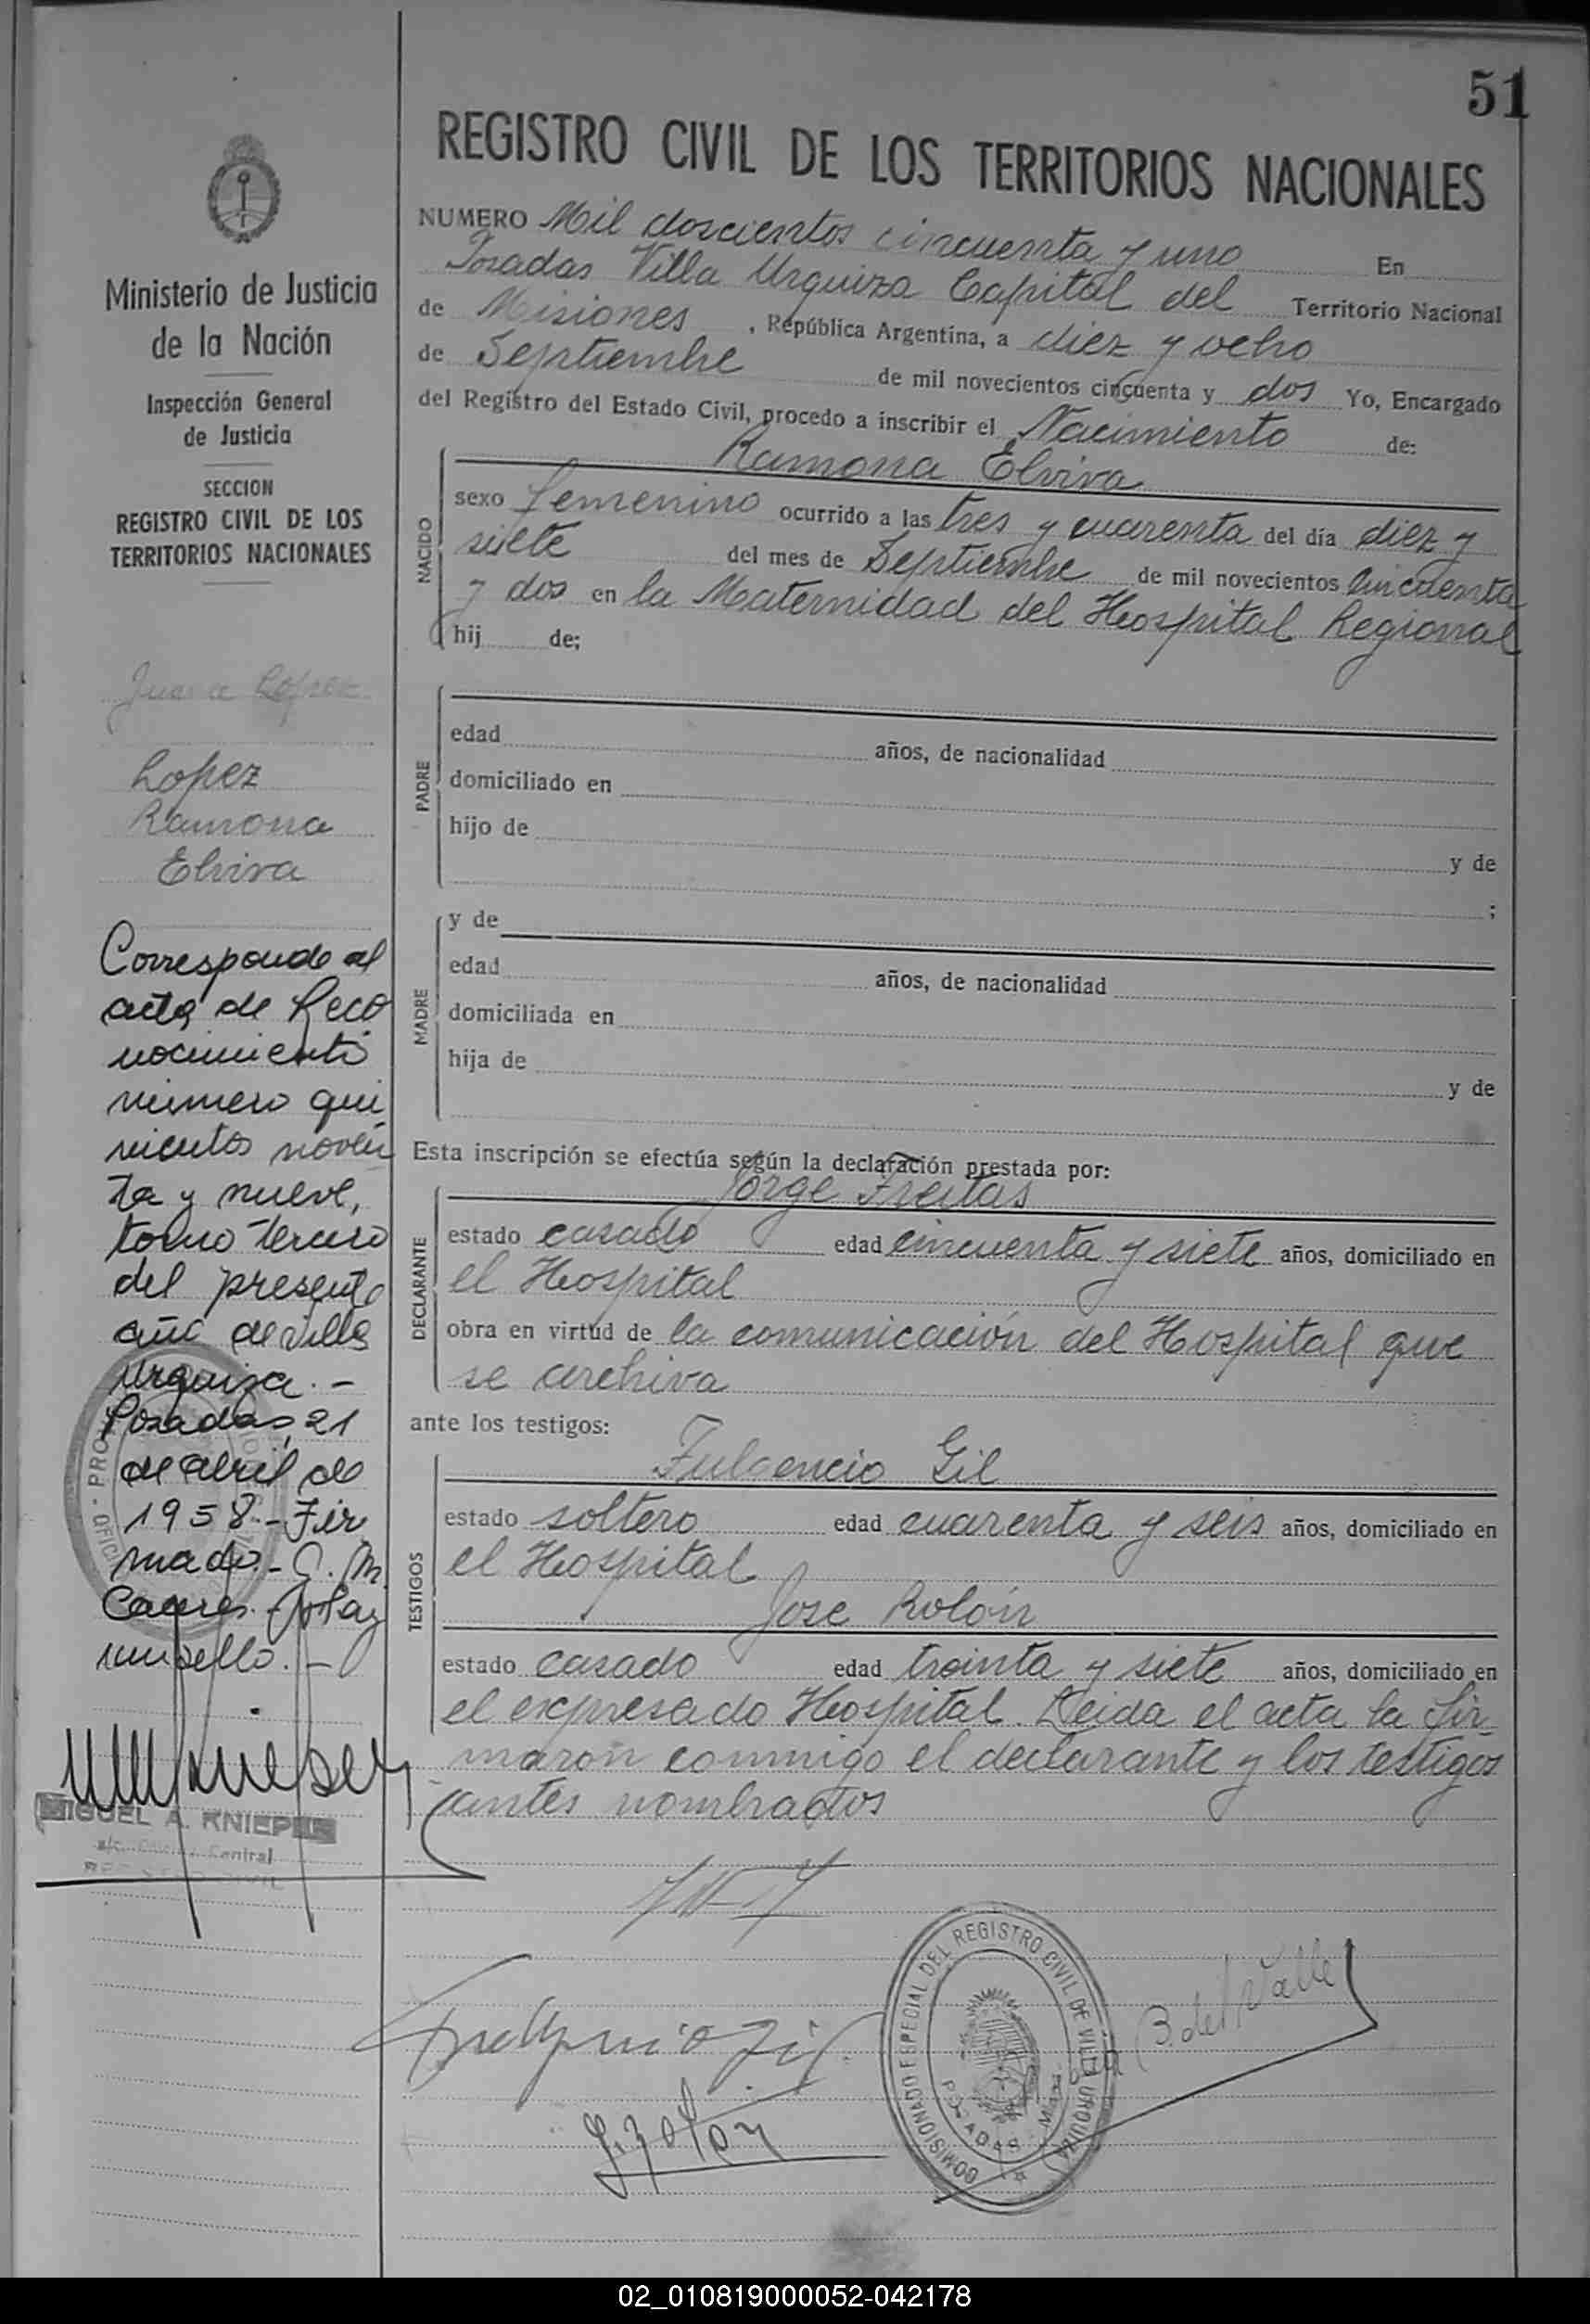 51
REGISTRO CIVIL DE LOS TERRITORIOS NACIONALES
Ministerio de Justicia
de la Nación
Inspección General
de Justicia
SECCION
REGISTRO CIVIL DE LOS
TERRITORIOS NACIONALES
Juana Lopez
Lopez
Ramona
Elvira
Corresponde al
acta de Reco
nocimiento
número qui
nientos noven
ta y nueve,
tomo tercero
del presente
año de Villa
Urquiza.-
Posadas, 21
de abril de
1958.- Fir
mado.- C. M.
Caceres.- Hay
un sello.-
MIGUEL A. KNIEPES
a/c. Oficina Central
REGISTRO CIVIL
NUMERO Mil doscientos cincuenta y uno En
Posadas Villa Urquiza Capital del Territorio Nacional
de Misiones, República Argentina, a diez y ocho
de Septiembre de mil novecientos cincuenta y dos Yo, Encargado
del Registro del Estado Civil, procedo a inscribir el Nacimiento de:
NACIDO
Ramona Elvira
sexo femenino ocurrido a las tres y cuarenta del día diez y
siete del mes de Septiembre de mil novecientos Cincuenta
y dos en la Maternidad del Hospital Regional
hij de;
PADRE
edad años, de nacionalidad
domiciliado en
hijo de
y de
;
MADRE
y de
edad años, de nacionalidad
domiciliada en
hija de
y de
Esta inscripción se efectúa según la declaración prestada por:
DECLARANTE
Jorge Freitas
estado casado edad cincuenta y siete años, domiciliado en
el Hospital
obra en virtud de la comunicación del Hospital que
se archiva
ante los testigos:
TESTIGOS
Fulgencio Gil
estado soltero edad cuarenta y seis años, domiciliado en
el Hospital
Jose Rolón
estado casado edad trainta y siete años, domiciliado en
el expresado Hospital. Leida el acta la fir-
maron conmigo el declarante y los testigos
antes nombrados
Fulgencio Gil
J. Rolon
COMISIONADO ESPECIAL DEL REGISTRO CIVIL DE VILLA URQUIZA
POSADAS - Mnes.
B. del Valle
02_010819000052-042178